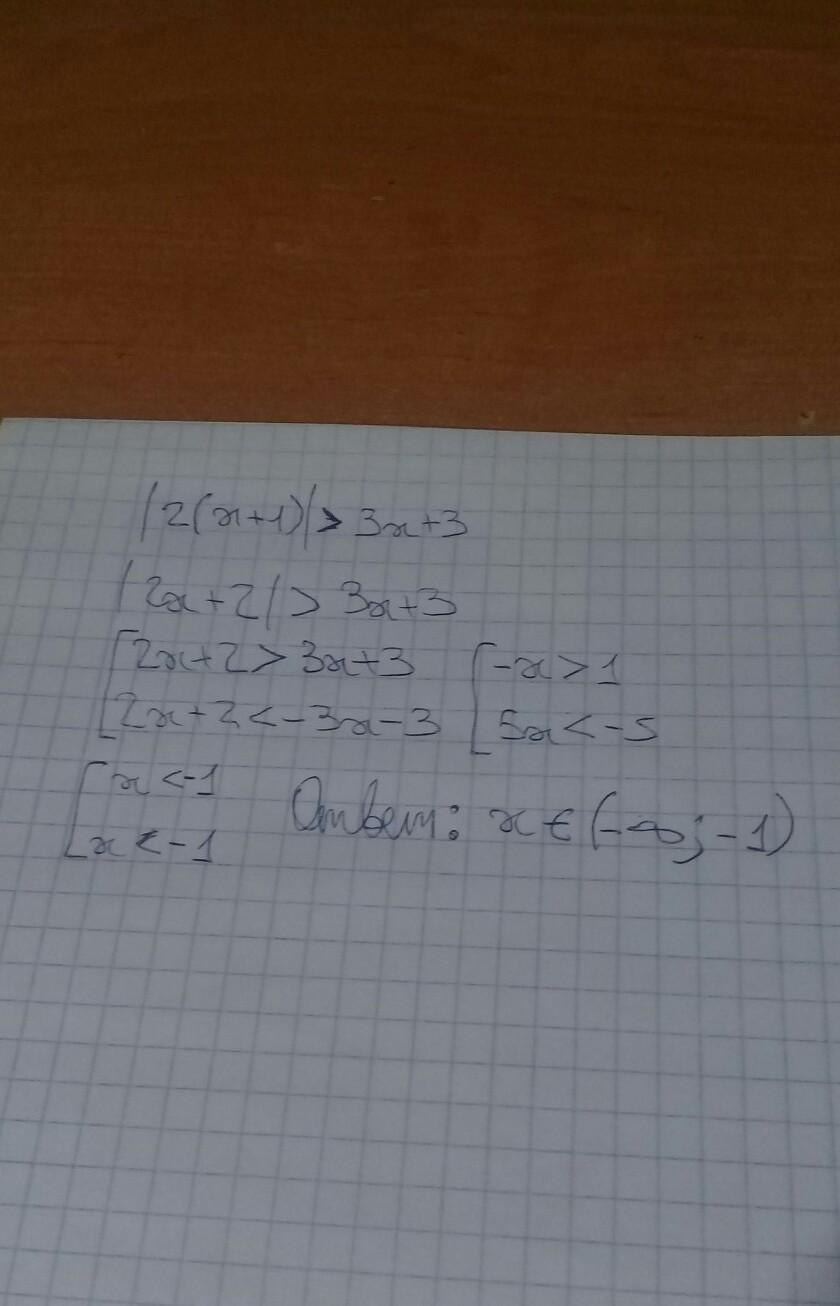 |2(x+1)|> 3x+3
|2x+2|> 3x+3
[2x+2> 3x+3 [-x>1
[2x+2<-3x-3 [5x<-5
[x<-1
[x<-1 Ответ: x∈(-∞;-1)